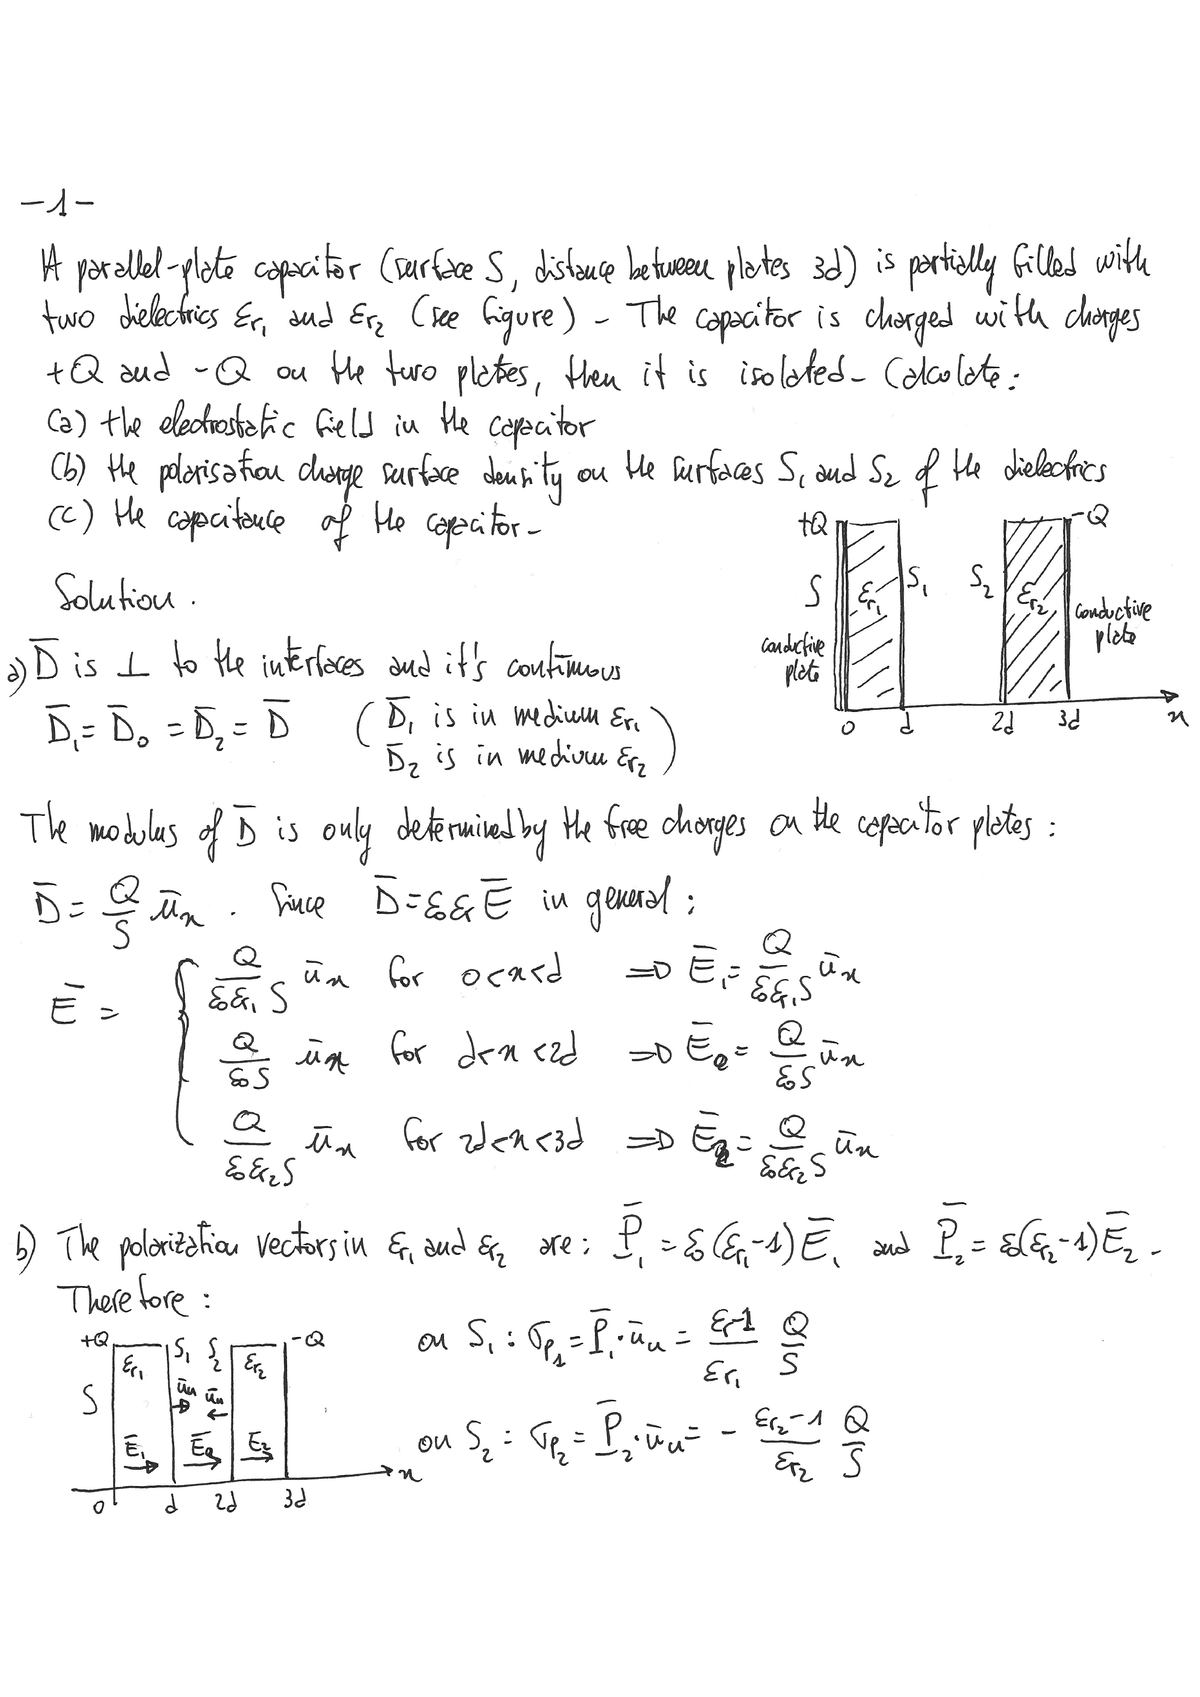 -1-
A parallel-plate capacitor (surface S, distance between plates 3d) is partially filled with
two dielectrics εr₁ and εr₂ (see figure) - The capacitor is charged with charges
+Q and -Q on the two plates, then it is isolated - Calculate:
(a) the electrostatic field in the capacitor
(b) the polarisation charge surface density on the surfaces S₁ and S₂ of the dielectrics
(c) the capacitance of the capacitor -
+Q -Q
S εr₁ S₁ S₂ εr₂
conductive plate
conductive plate
0 d 2d 3d x
Solution.
a) D̄ is ⊥ to the interfaces and it's continuous
D̄₁ = D̄₀ = D̄₂ = D̄ (D̄₁ is in medium εr₁
D̄₂ is in medium εr₂)
The modulus of D̄ is only determined by the free charges on the capacitor plates:
D̄ = Q/S ūx . Since D̄ = ε₀εrĒ in general:
Ē = { Q/(ε₀εr₁S) ūx for 0<x<d ⇒ Ē₁ = Q/(ε₀εr₁S) ūx
Q/(ε₀S) ūx for d<x<2d ⇒ Ē₀ = Q/(ε₀S) ūx
Q/(ε₀εr₂S) ūx for 2d<x<3d ⇒ Ē₂ = Q/(ε₀εr₂S) ūx
b) The polarization vectors in εr₁ and εr₂ are: P̄₁ = ε₀(εr₁-1)Ē₁ and P̄₂ = ε₀(εr₂-1)Ē₂ -
Therefore:
+Q S₁ S₂ -Q
εr₁ εr₂
S ūn ūn
Ē₁ Ē₀ Ē₂
x
0 d 2d 3d
on S₁: σp₁ = P̄₁·ūn = (εr-1)/εr₁ Q/S
on S₂: σp₂ = P̄₂·ūn = - (εr₂-1)/εr₂ Q/S